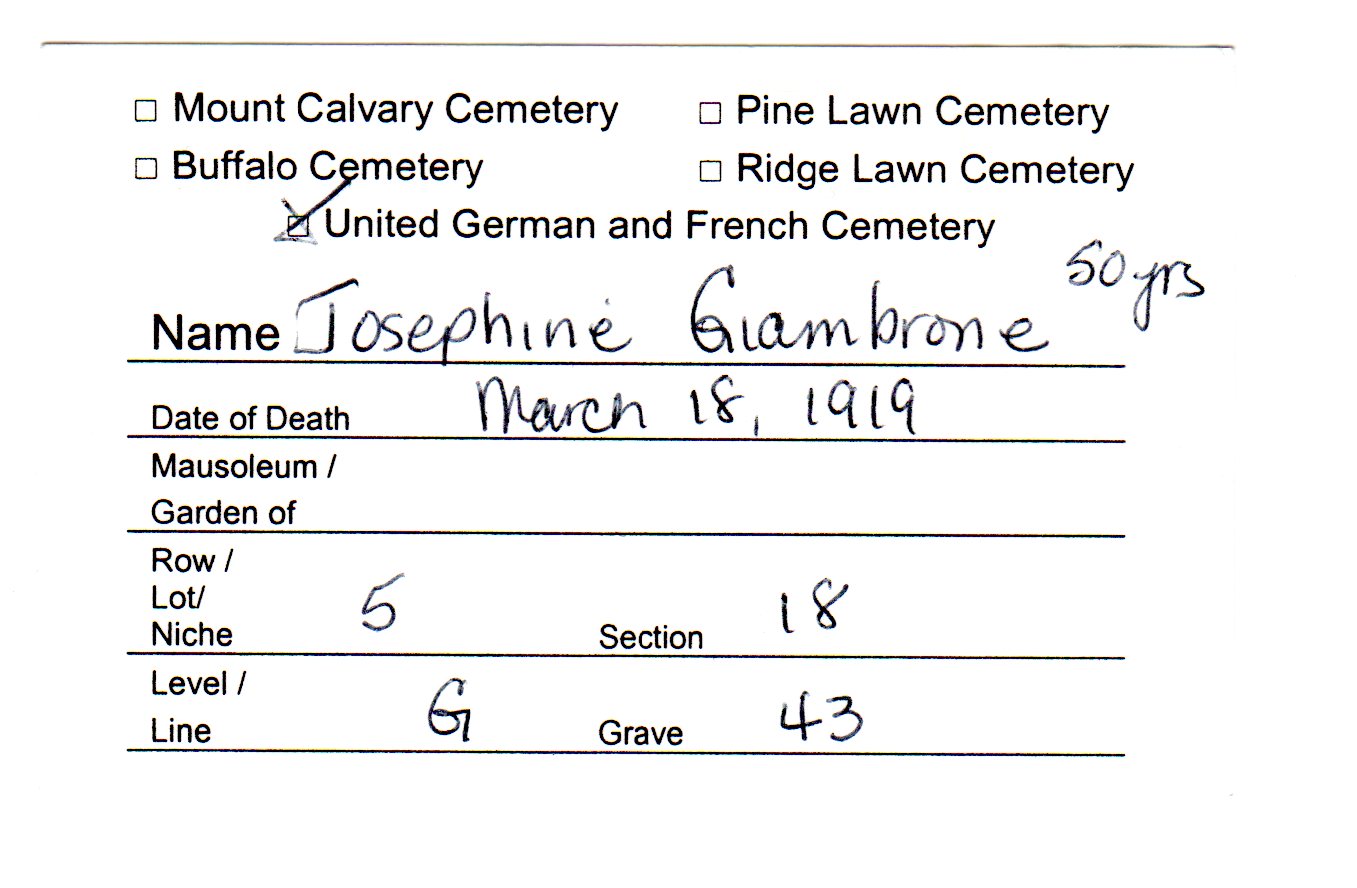 ☐ Mount Calvary Cemetery ☐ Pine Lawn Cemetery
☐ Buffalo Cemetery ☐ Ridge Lawn Cemetery
☑ United German and French Cemetery
50 yrs
Name Josephine Giambrone
Date of Death March 18, 1919
Mausoleum /
Garden of
Row /
Lot/ 5 18
Niche Section
Level /
Line G Grave 43